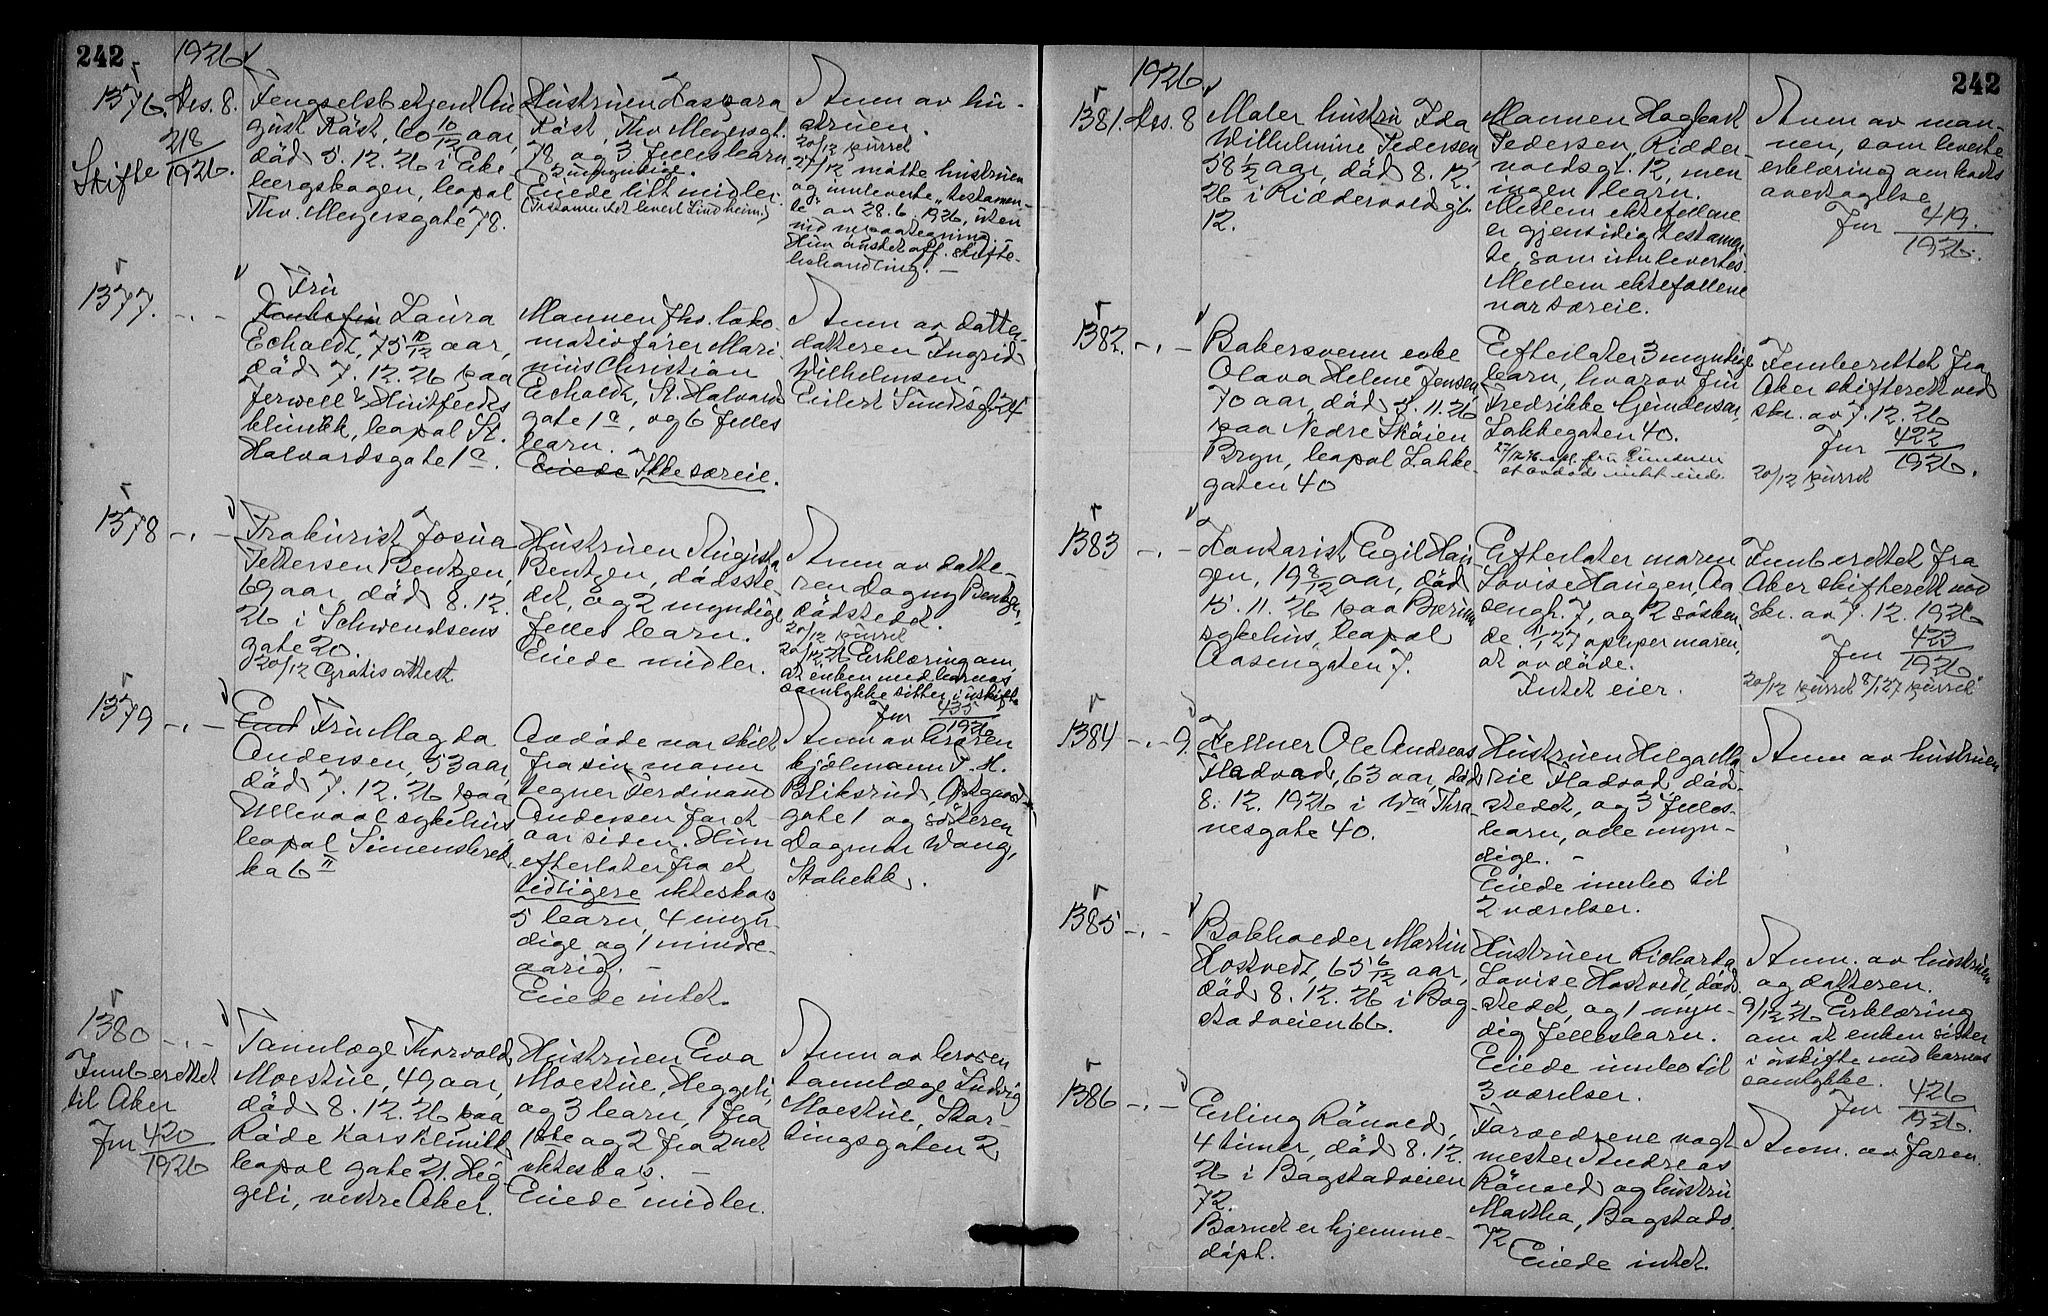 242
1926
1376. Des. 8.
218
1926.
Skifte
Fengselsbetjent Au-
gust Räst, 60 10/12 aar,
död 5.12.26 i Eke-
bergskogen, bopæl
Thv. Meyersgate 78.
Hustruen Kaspara
Räst, Thv. Meyersgt.
78, og 3 fellesbarn
3 umyndige.
Eiede litt midler.
(Testamentet levert Lindheim)
Anm av hu-
struen.
20/12 purret
27/12 møtte hustruen
og innleverte "testamen-
te" av 28.6.1926, uten
Hun ønsket off. skifte-
behandling. —
1377. -.-
Fru
Laura
Echoldt, 75 10/12 aar,
död 7.12.26 paa
Jervell & Huitfeldts
klinikk, bopæl St.
Halvardsgate 1a.
Mannen fhv. loko-
motivfører Mari-
nius Christian
Echoldt, St. Halvards
gate 1a, og 6 felles
barn.
Eiede Ikke særeie.
Anm av datter-
datteren Ingrid
Wilhelmsen
Eilert Sundtsgt 24
1378 -.-
Prokurist Josua
Pettersen Bentzen,
69 aar, död 8.12.
26 i Schwendsens
gate 20.
20/12 Gratis attest.
Hustruen Augusta
Bentzen, dødsste-
det, og 2 myndige
felles barn.
Eiede midler.
Anm av datte-
ren Dagny Bentzen,
dödstedet.
20/12 purret
20/12 26 Erklæring om,
at enken med barnas
samtykke sitter i uskifte
Jnr 435
1926
1379 -.-
Fru Magda
Andersen, 53 aar,
död 7.12.26 paa
Ullevaal sykehus
bopæl Simensbrek-
ka 6 II
Avdöde var skilt
fra sin mann
tegner Ferdinand
Andersen for et
aar siden. Hun
efterlater fra et
tidligere ekteskap
5 barn, 4 myn-
dige og 1 mindre-
aarig. —
Eiede intet.
Anm av broren
kjölmann T. H.
Bliksrud,
gate 1 og søsteren
Dagmar Wang,
Stabekk.
1380 -.-
Innberettet
til Aker
Jnr 420
1926
Tannlæge Thorvald
Moestue, 49 aar,
död 8.12.26 paa
Röde Kors Klinikk
bopæl gate 21. Heg-
geli, vestre Aker.
Hustruen Eva
Moestue, Heggeli,
og 3 barn, 1 fra
1ste og 2 fra 2net
ekteskap. —
Eiede midler.
Anm av broren
tannlæge Ludvig
Moestue, Stor-
tingsgaten 2
1926
242
1381. Des. 8
Maler hustru Ida
Wilhelmine Pedersen,
58 1/2 aar, död 8.12.
26 i Riddervoldsgt.
12.
Mannen Hagbart
Pedersen, Ridder-
voldsgt. 12, men
ingen barn.
Mellem ektefellene
er gjensidig testamen-
te, som innlevertes.
Mellem ektefellene
var særeie.
Anm av man-
nen, som leverte
erklæring om boets
overtagelse
Jnr 419.
1926.
1382. -.-
Bakersvenn enke
Olava Helene Jensen,
70 aar, död 5.11.26
paa Nedre Skøien
Bryn, bopæl Lakke-
gaten 40
Efterlater 3 myndige
barn, hvorav fru
Fredrikke Gundersen,
Lakkegaten 40.
at avdöde intet eiede.
Innberettet fra
Aker skifterett ved
skr. av 7.12.26
Jnr 422
1926.
20/12 purret
1383 -.-
Kontorist Egil Hau-
gen, 19 8/12 aar, död
15.11.26 paa Bærum
sykehus, bopæl
Aasengaten 7.
Efterlater moren
Lovise Haugen, Aa-
sengt. 7, og 12 søsken-
de. 8/1 27 oplyser moren,
at avdöde.
Intet eier.
Innberettet fra
Aker skifterett ved
skr. av 7.12.1926
Jnr 423
1926
20/12 purret 8/1 27 purret
1384 -.- 9.
Kellner Ole Andreas
Fladvad, 63 aar, död
8.12.1926 i Wm Thra-
nesgate 40.
Hustruen Helga Ma-
rie Fladvad, död-
stedet, og 3 felles-
barn, alle myn-
dige. —
Eiede innbo til
2 værelser.
Anm av hustruen
1385 -.-
Bokholder Martin
Hostvedt, 65 6/12 aar,
död 8.12.26 i Bog-
stadveien 66.
Hustruen Richarda
Lovise Hostvedt, död-
stedet, og 1 myn-
dig fellesbarn.
Eiede innbo til
3 værelser.
Anm. av hustruen
og datteren.
9/12 26 Erklæring
om at enken sitter
i uskifte med barnas
samtykke.
Jnr 426
1926.
1386 -.-
Erling Rönold,
4 timer, död 8.12.
26 i Bogstadveien
72.
Barnet er hjemme-
döpt.
Foreldrene vagt-
mester Andreas
Rönold og hustru
Martha, Bogstadv.
72
Eiede intet.
Anm. av faren.